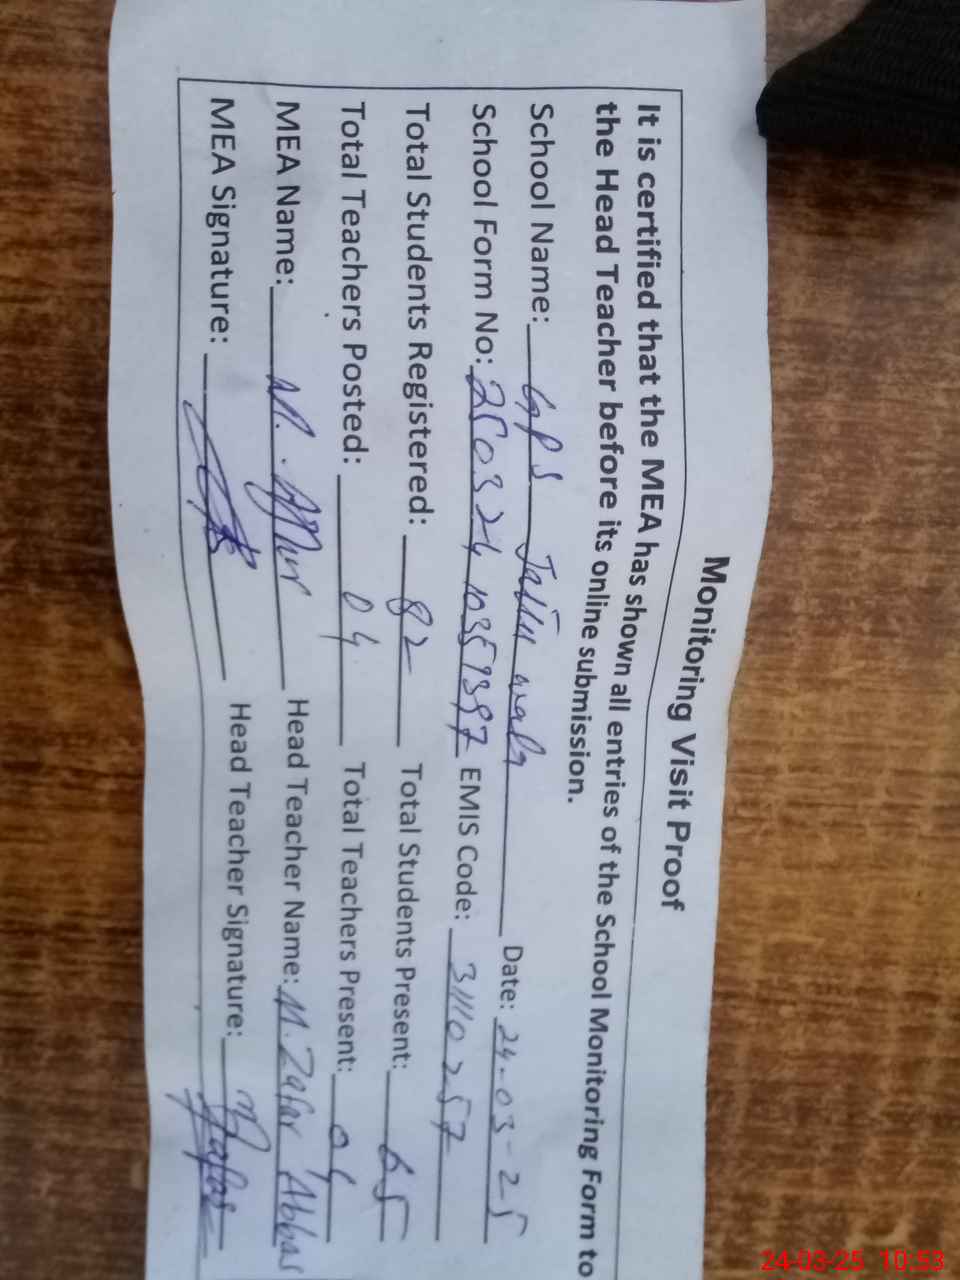 Monitoring Visit Proof
It is certified that the MEA has shown all entries of the School Monitoring Form to
the Head Teacher before its online submission.
School Name: GPS wala Date: 24-03-25
School Form No: 250324 10359397 EMIS Code: 31110257
Total Students Registered: 82 Total Students Present: 65
Total Teachers Posted: 04 Total Teachers Present: 04
MEA Name: M. Head Teacher Name: M. Zafar Abbas
MEA Signature: Head Teacher Signature:
24-03-25 10:53